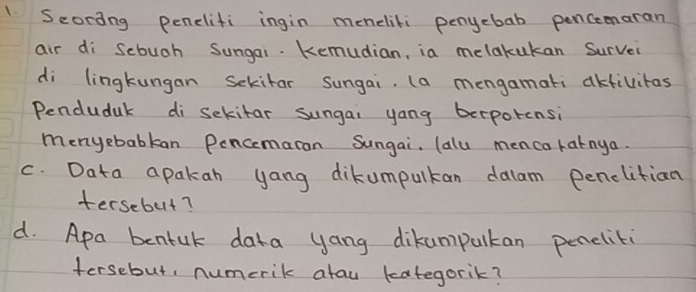 1. Seorang peneliti ingin meneliti penyebab pencemaran
air di sebuah sungai. Kemudian, ia melakukan survei
di lingkungan sekitar sungai. Ia mengamati aktivitas
Penduduk di sekitar sungai yang berpotensi
menyebabkan pencemaran sungai. lalu mencatatnya.
c. Data apakah yang dikumpulkan dalam penelitian
tersebut?
d. Apa bentuk data yang dikumpulkan peneliti
tersebut, numerik atau kategorik?